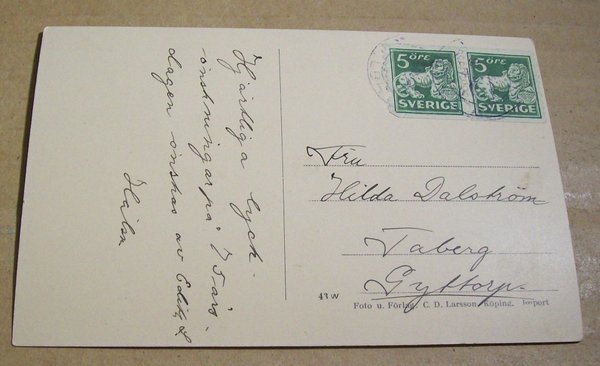 Hjärtliga lyck-
önskningar på 75 års-
dagen önskas av Edit, L
Hälsn
5 ÖRE
SVERIGE
5 ÖRE
SVERIGE
Fru
Hilda Dalström
Taberg
Gyttorp.
43 W
Foto u. Förlag. C. D. Larsson Köping. Import